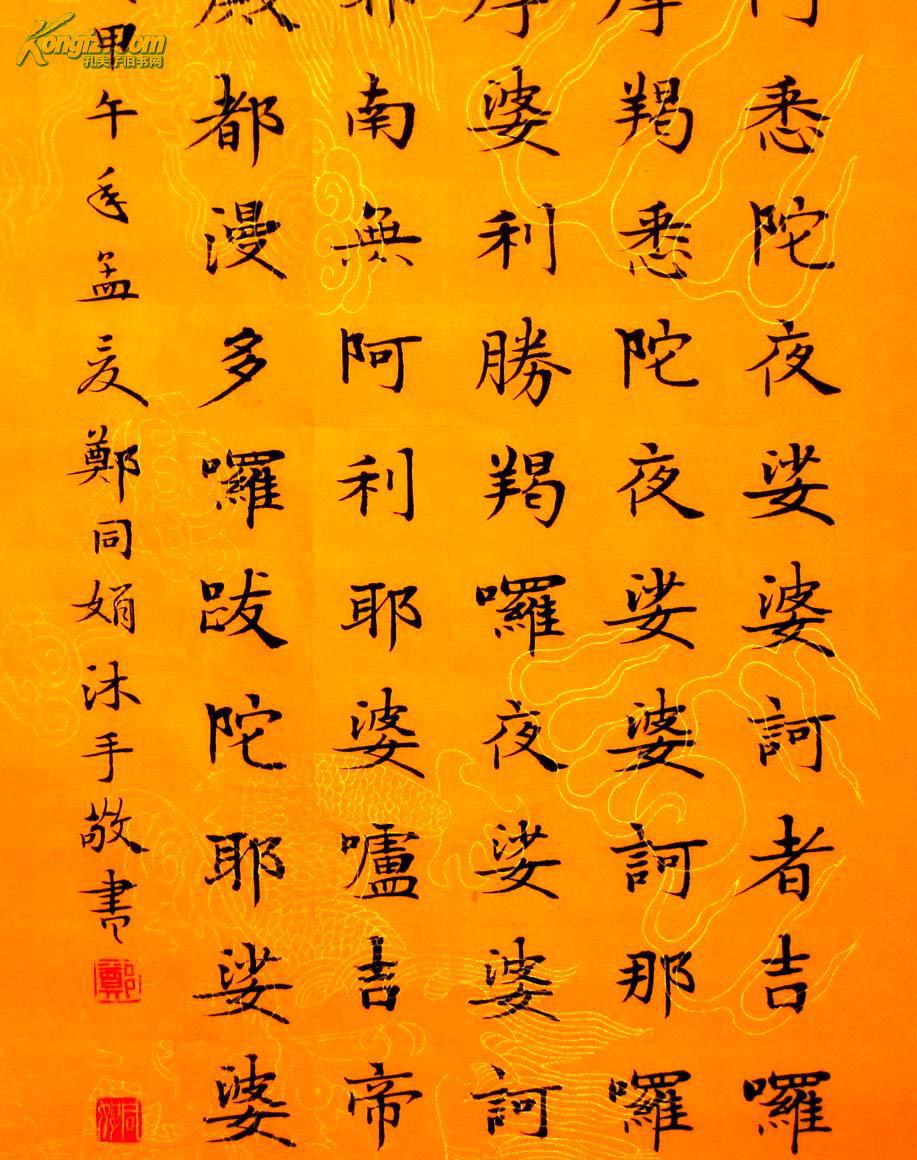 悉陀夜娑婆訶者吉囉
羯悉陀夜娑婆訶那囉
婆利勝羯囉夜娑婆訶
南無阿利耶婆嚧吉帝
都漫多囉跋陀耶娑婆
甲午年孟夏鄭同娟沐手敬書
鄭
同娟
Kongfz.com
孔夫子旧书网